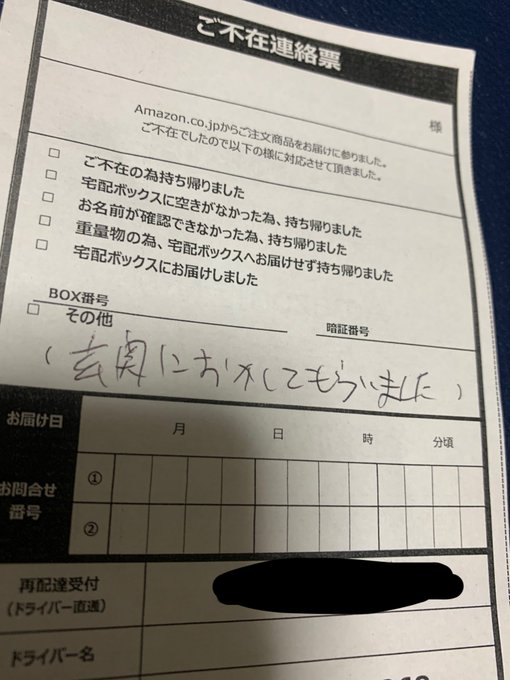 ご不在連絡票
様
Amazon.co.jpからご注文商品をお届けに参りました。
ご不在でしたので以下の様に対応させて頂きました。
□ ご不在の為持ち帰りました
□ 宅配ボックスに空きがなかった為、持ち帰りました
□ お名前が確認できなかった為、持ち帰りました
□ 重量物の為、宅配ボックスへお届けせず持ち帰りました
□ 宅配ボックスにお届けしました
BOX番号 暗証番号
□ その他
(玄関におかしてもらいました)
お届け日 月 日 時 分頃
お問合せ
番号
①
②
再配達受付
(ドライバー直通)
ドライバー名